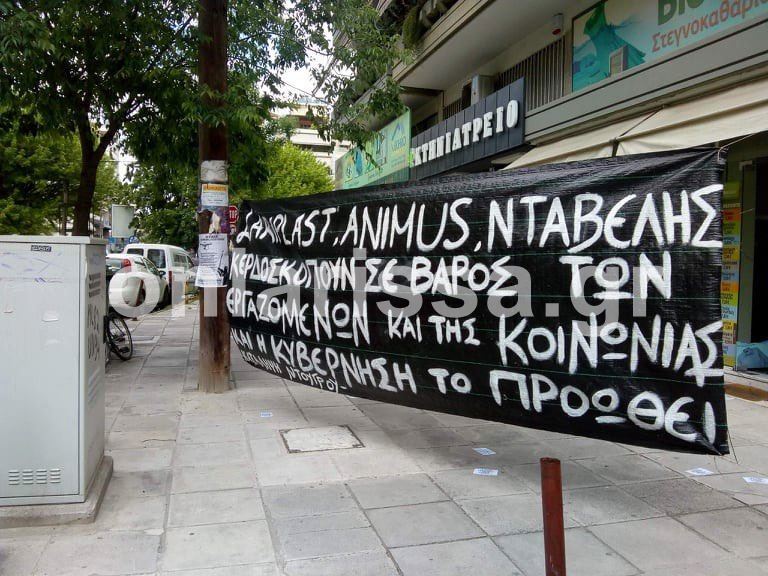 Στεγνοκαθαρι
ΚΤΗΝΙΑΤΡΕΙΟ
ANIMUS, ΝΤΑΒΕΛΗΣ
ΚΕΡΔΟΣΚΟΠΟΥΝ ΣΕ ΒΑΡΟΣ ΤΩΝ
ΕΡΓΑΖΟΜΕΝΩΝ ΚΑΙ ΤΗΣ ΚΟΙΝΩΝΙΑΣ
ΚΑΙ Η ΚΥΒΕΡΝΗΣΗ ΤΟ ΠΡΟΩΘΕΙ
onlarissa.gr